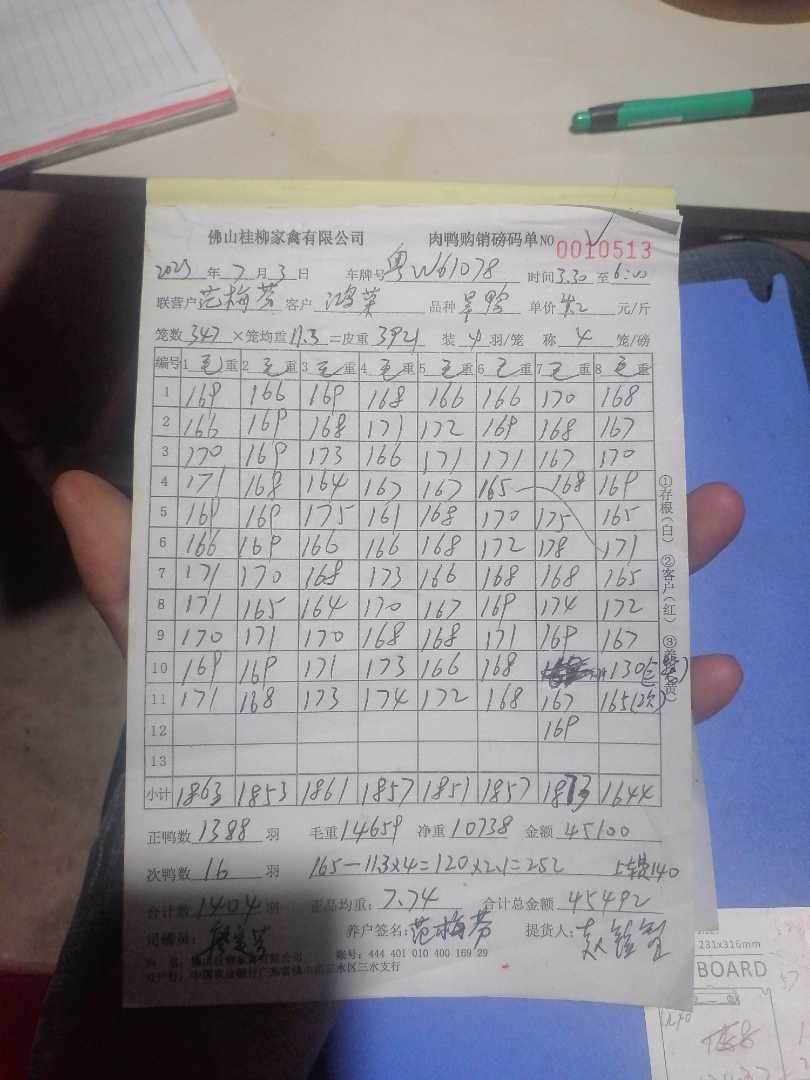 佛山桂柳家禽有限公司 肉鸭购销磅码单 NO 0010513
2023 年 7 月 3 日 车牌号 粤W61078 时间 3.30 至 6:00
联营户 范梅芬 客户 鸿荣 品种 单价 4.2 元/斤
笼数 347 ×笼均重 11.3 =皮重 3921 装 4 羽/笼 称 4 笼/磅
编号 1 毛重 2 毛重 3 毛重 4 毛重 5 毛重 6 毛重 7 毛重 8 毛重
1 169 166 169 168 166 166 170 168
2 166 169 168 171 172 169 168 167
3 170 169 173 166 171 171 167 170
4 171 168 164 167 167 165 168 169
5 169 169 175 161 168 170 175 165
6 166 169 166 166 168 172 178 171
7 171 170 168 173 166 168 168 165
8 171 165 164 170 167 169 174 172
9 170 171 170 168 168 171 169 167
10 169 169 171 173 166 168 130
11 171 168 173 174 172 168 167 165(次)
12 169
13
小计 1863 1853 1861 1857 1851 1857 1873 1644
正鸭数 1388 羽 毛重 14659 净重 10738 金额 45100
次鸭数 16 羽 165-11.3×4=120×2.1=252 140
合计数 1404 羽 正品均重: 7.74 合计总金额 45492
司磅员: 养户签名: 范梅芬 提货人:
佛山桂柳家禽有限公司 账号: 444 401 010 400 169 29
开户行: 中国农业银行广东省佛山市三水区三水支行
①存根(白) ②客户(红) ③
231x316mm
BOARD